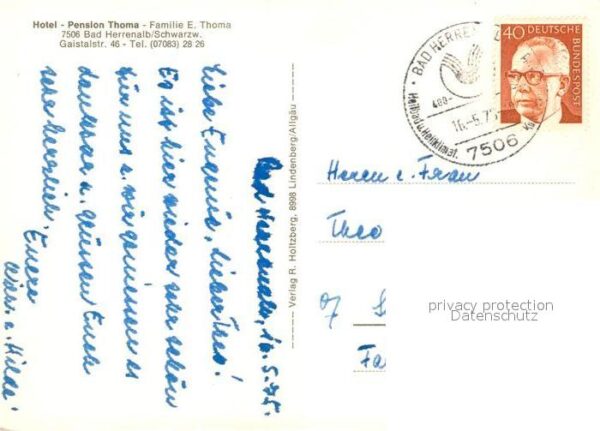 Hotel - Pension Thoma - Familie E. Thoma
7506 Bad Herrenalb/Schwarzw.
Gaistalstr. 46 - Tel. (07083) 28 26
Bad Herrenalb, 16.5.75.
Liebe Eugenie, lieber Theo!
Es ist hier wieder sehr schön
für uns u. wir geniessen es
dankbar u. grüssen Euch
sehr herzlich.
Eure
u. Hilda.
Verlag R. Holtzberg, 8998 Lindenberg/Allgäu
BAD HERREN
400-
16.-5.75
7506
40
DEUTSCHE
BUNDESPOST
Herrn u. Frau
Theo
privacy protection
Datenschutz